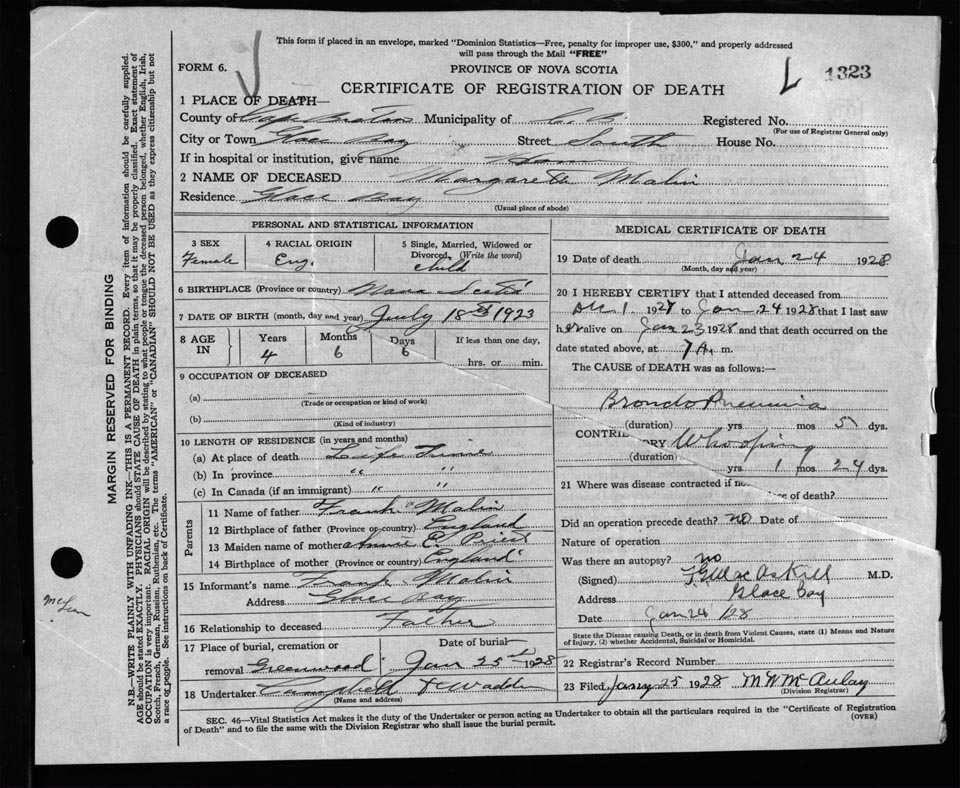 This form if placed in an envelope, marked "Dominion Statistics—Free, penalty for improper use, $300," and properly addressed
will pass through the Mail "FREE"
FORM 6.
PROVINCE OF NOVA SCOTIA
L 1323
CERTIFICATE OF REGISTRATION OF DEATH
1 PLACE OF DEATH—
County of Cape Breton Municipality of C. B. Registered No.
(For use of Registrar General only)
City or Town Glace Bay Street South House No.
If in hospital or institution, give name Home
2 NAME OF DECEASED Margareth Malin
Residence Glace Bay
(Usual place of abode)
PERSONAL AND STATISTICAL INFORMATION
3 SEX Female
4 RACIAL ORIGIN Eng.
5 Single, Married, Widowed or
Divorced (Write the word)
child
6 BIRTHPLACE (Province or country) Nova Scotia
7 DATE OF BIRTH (month, day and year) July 18th 1923
8 AGE IN Years 4 Months 6 Days 6 If less than one day,
hrs. or min.
9 OCCUPATION OF DECEASED
(a)
(Trade or occupation or kind of work)
(b)
(Kind of industry)
10 LENGTH OF RESIDENCE (in years and months)
(a) At place of death Life Time
(b) In province " "
(c) In Canada (if an immigrant) " "
Parents
11 Name of father Frank Malin
12 Birthplace of father (Province or country) England
13 Maiden name of mother Annie E. Price
14 Birthplace of mother (Province or country) England
15 Informant's name Frank Malin
Address Glace Bay
16 Relationship to deceased Father
17 Place of burial, cremation or Date of burial
removal Greenwood Jan 25th 1928
18 Undertaker Campbell & Wadden
(Name and address)
MEDICAL CERTIFICATE OF DEATH
19 Date of death Jan 24 1928
(Month, day and year)
20 I HEREBY CERTIFY that I attended deceased from
Dec 1 1927 to Jan 24 1928 that I last saw
her alive on Jan 23 1928 and that death occurred on the
date stated above, at 7 A. m.
The CAUSE of DEATH was as follows:—
Broncho Pneumonia
(duration) yrs mos 5 dys.
CONTRIB RY Whooping
(duration) yrs 1 mos 24 dys.
21 Where was disease contracted if no
ce of death?
Did an operation precede death? no Date of
Nature of operation
Was there an autopsy? no
(Signed) MacAskill M.D.
Address Glace Bay
Date Jan 24 /28
State the Disease causing Death, or in death from Violent Causes, state (1) Means and Nature
of Injury, (2) whether Accidental, Suicidal or Homicidal.
22 Registrar's Record Number
23 Filed Jany 25 1928 M W McAulay
(Division Registrar)
SEC. 46—Vital Statistics Act makes it the duty of the Undertaker or person acting as Undertaker to obtain all the particulars required in the "Certificate of Registration
of Death" and to file the same with the Division Registrar who shall issue the burial permit.
(OVER)
MARGIN RESERVED FOR BINDING
N.B.—WRITE PLAINLY WITH UNFADING INK—THIS IS A PERMANENT RECORD. Every item of information should be carefully supplied.
AGE should be stated EXACTLY. PHYSICIANS should STATE CAUSE OF DEATH in plain terms, so that it may be properly classified. Exact statement of
OCCUPATION is very important. RACIAL ORIGIN will be described by stating to what people or tongue the deceased person belonged, whether English, Irish,
Scotch, French, German, Russian, Ruthenian, etc. The terms "AMERICAN" or "CANADIAN" SHOULD NOT BE USED as they express citizenship but not
a race or people. See instructions on back of Certificate.
McLean